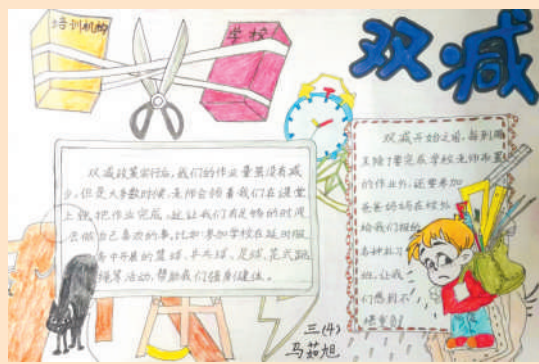 培训机构
学校
双减
双减政策实行后,我们的作业量虽没有减
少,但是大多数时候,老师会领着我们在课堂
上就把作业完成。这让我们有足够的时间
去做自己喜欢的事,比如参加学校在延时服
务中开展的篮球、乒乓球、足球、花式跳
绳等活动,帮助我们强身健体。
双减开始之前,每到周
末除了要完成学校老师布置
的作业外,还要参加
爸爸妈妈在校外
给我们报的
各种补习
班,让我
们感到不
堪重负
三(4)
马茹旭